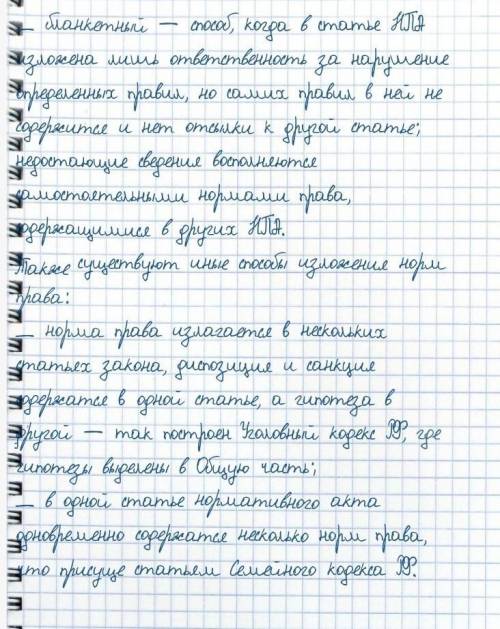 — бланкетный — способ, когда в статье НПА
изложена лишь ответственность за нарушение
определенных правил, но самих правил в ней не
содержится и нет отсылки к другой статье;
недостающие сведения восполняются
самостоятельными нормами права,
содержащимися в других НПА.
Также существуют иные способы изложения норм
права:
— норма права излагается в нескольких
статьях закона, диспозиция и санкция
содержатся в одной статье, а гипотеза в
другой — так построен Уголовный кодекс РФ, где
гипотезы выделены в Общую часть;
— в одной статье нормативного акта
одновременно содержатся несколько норм права,
что присуще статьям Семейного кодекса РФ.